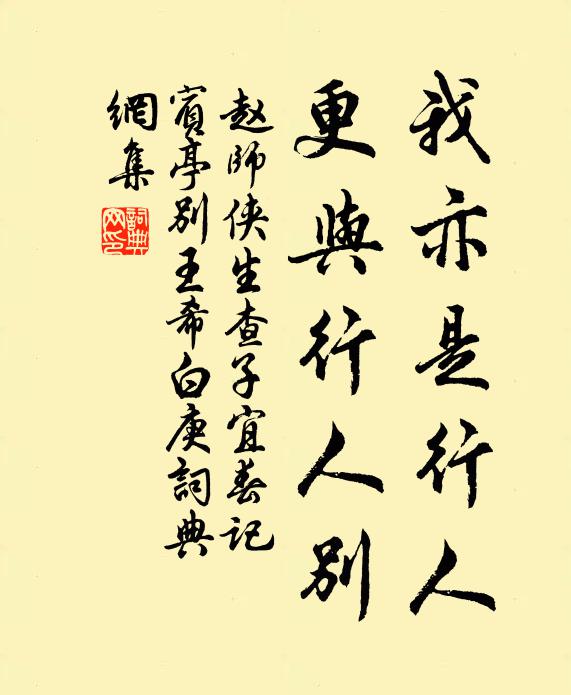 我亦是行人
更與行人別
赵師侠生查子宜春記
賓亭別王希白庚詞典
網集
詞典网印